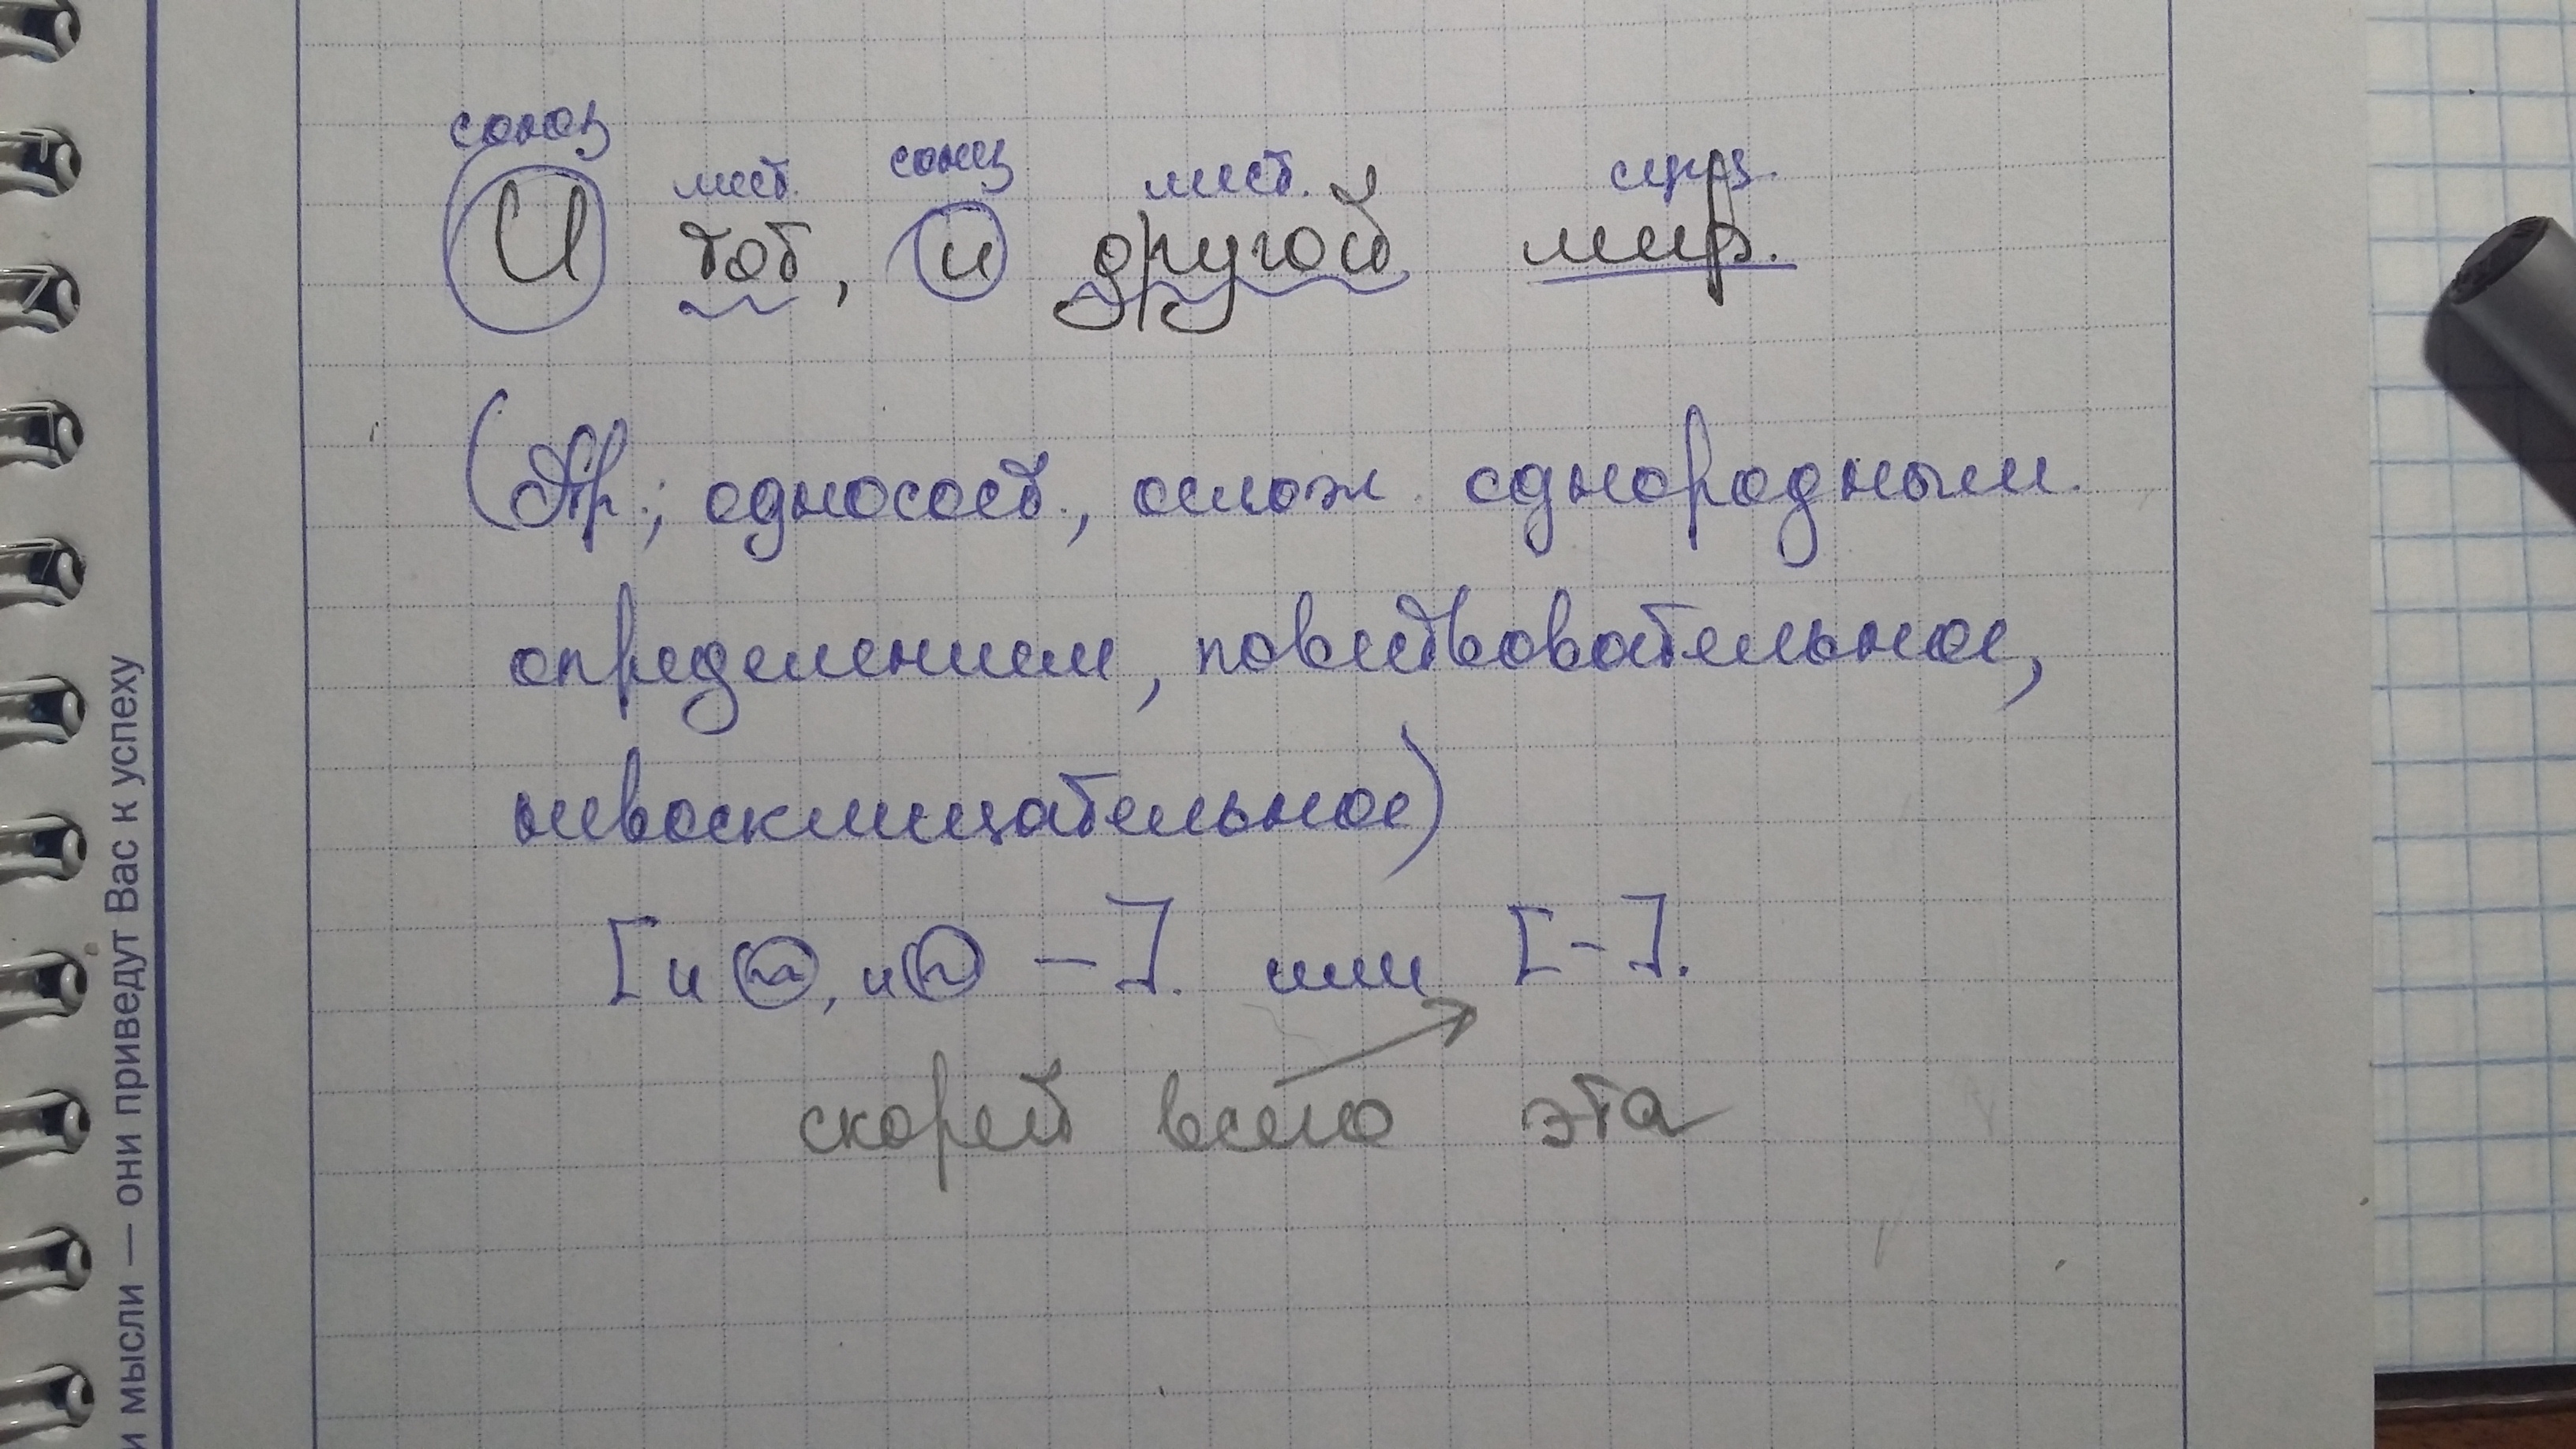 союз мест. союз мест. сущ.
И тот, и другой мир.
(Пр.; односост., ослож. однородным
определением, повествовательное,
невосклицательное)
[и ~, и ~ —]. или [-].
скорей всего эта
и мысли — они приведут Вас к успеху